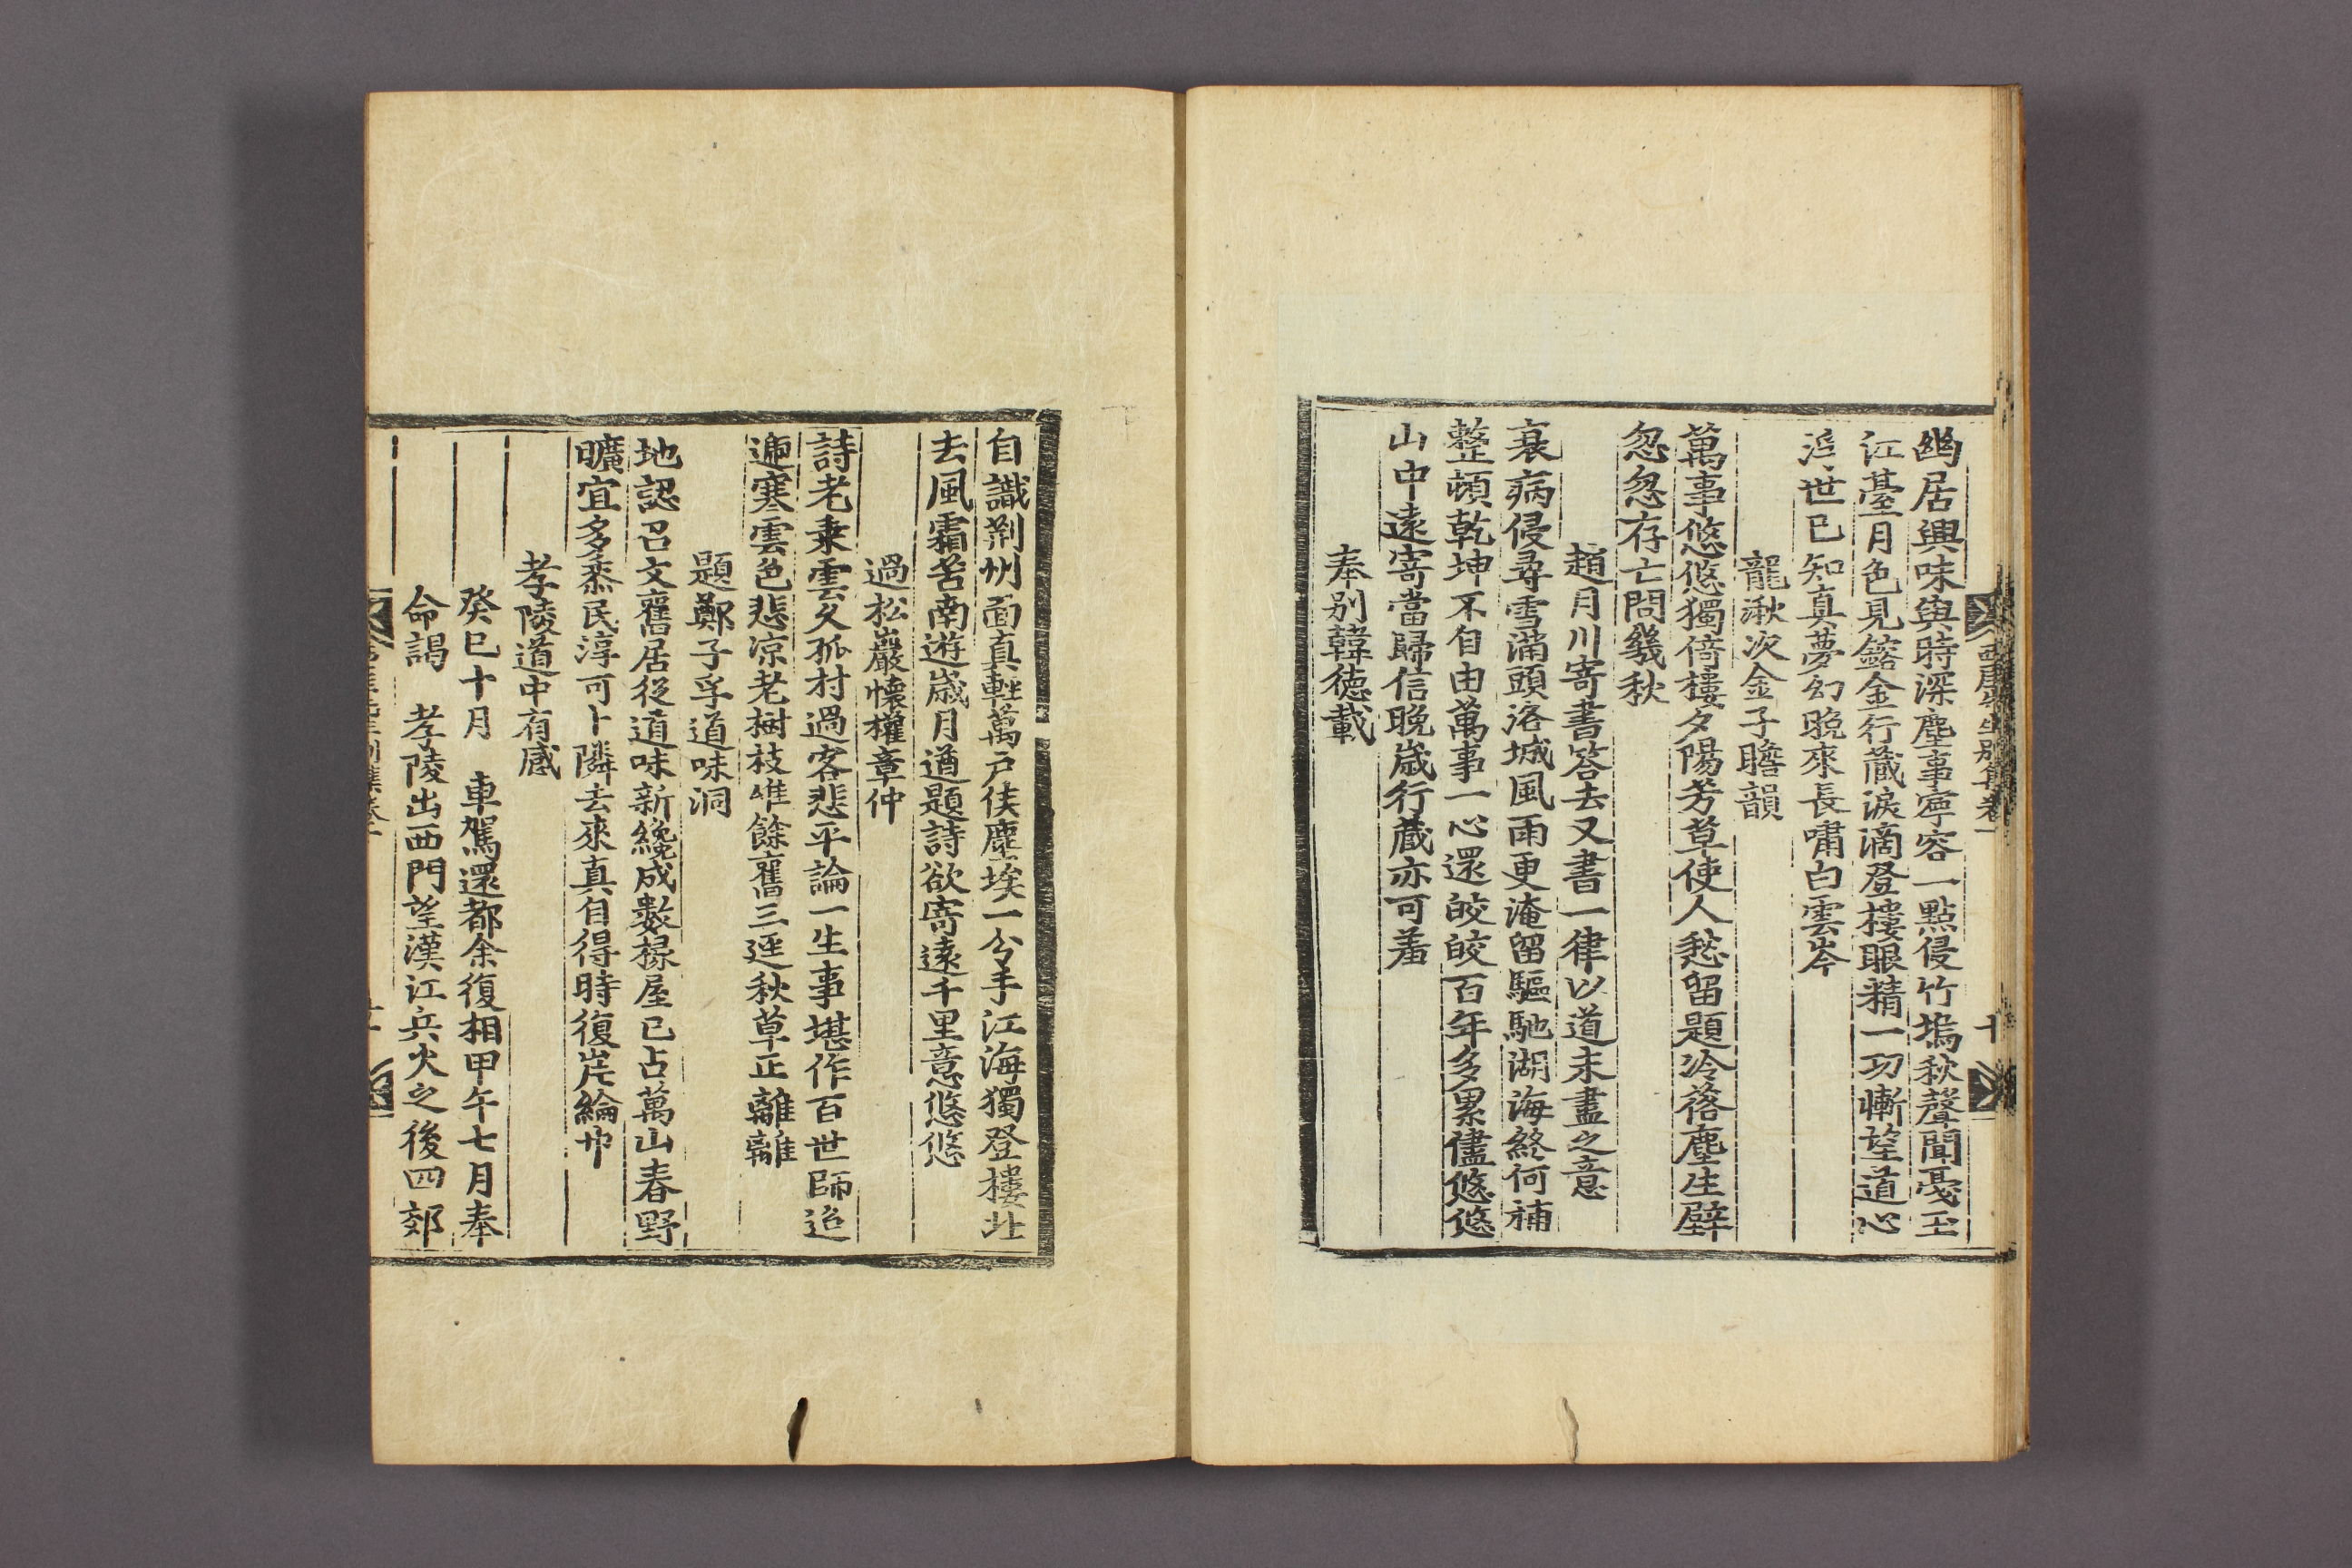 西厓先生別集卷一
十
幽居興味與時深塵事寧容一點侵竹塢秋聲聞戞玉
江臺月色見鎔金行藏淚滴登樓眼精一功慚望道心
世已知真夢幻晩來長嘯白雲岑
龍湫次金子瞻韻
萬事悠悠獨倚樓夕陽芳草使人愁留題冷落塵生壁
忽忽存亡問幾秋
趙月川寄書答去又書一律以道未盡之意
衰病侵尋雪滿頭洛城風雨更淹留驅馳湖海終何補
整頓乾坤不自由萬事一心還皎皎百年多累儘悠悠
山中遠寄當歸信晩歲行藏亦可羞
奉別韓德載
自識荊州面真輕萬戶侯塵埃一分手江海獨登樓北
去風霜苦南遊歲月遒題詩欲寄遠千里意悠悠
過松巖懷權章仲
詩老乘雲久孤村過客悲平論一生事堪作百世師迢
遞寒雲色悲凉老樹枝唯餘舊三逕秋草正離離
題鄭子孚道味洞
地認召文舊居從道味新纔成數椽屋已占萬山春野
曠宜多黍民淳可卜隣去來真自得時復岸綸巾
孝陵道中有感
癸巳十月 車駕還都余復相甲午七月奉
命謁 孝陵出西門望漢江兵火之後四郊